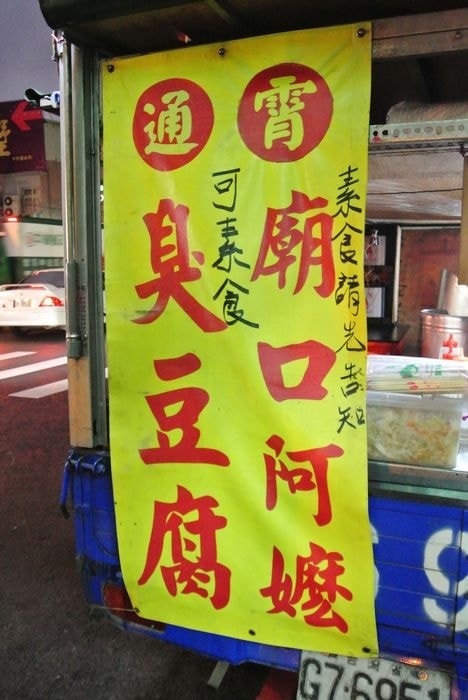 素食請先告知
霄廟口阿嬤
可素食
通臭豆腐
G7·695